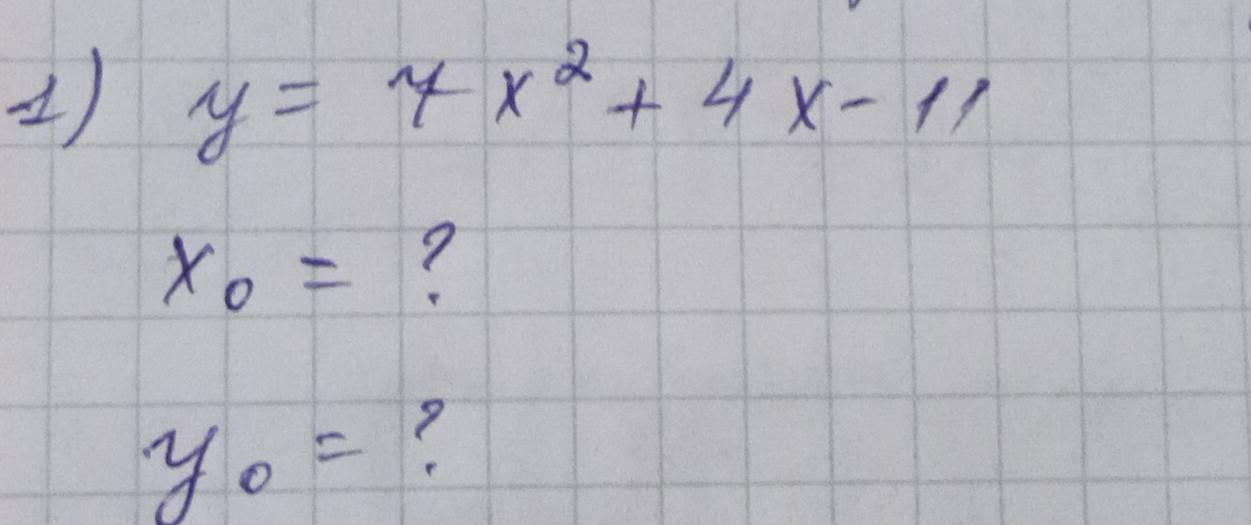 1) y = 7x² + 4x - 11
x₀ = ?
y₀ = ?